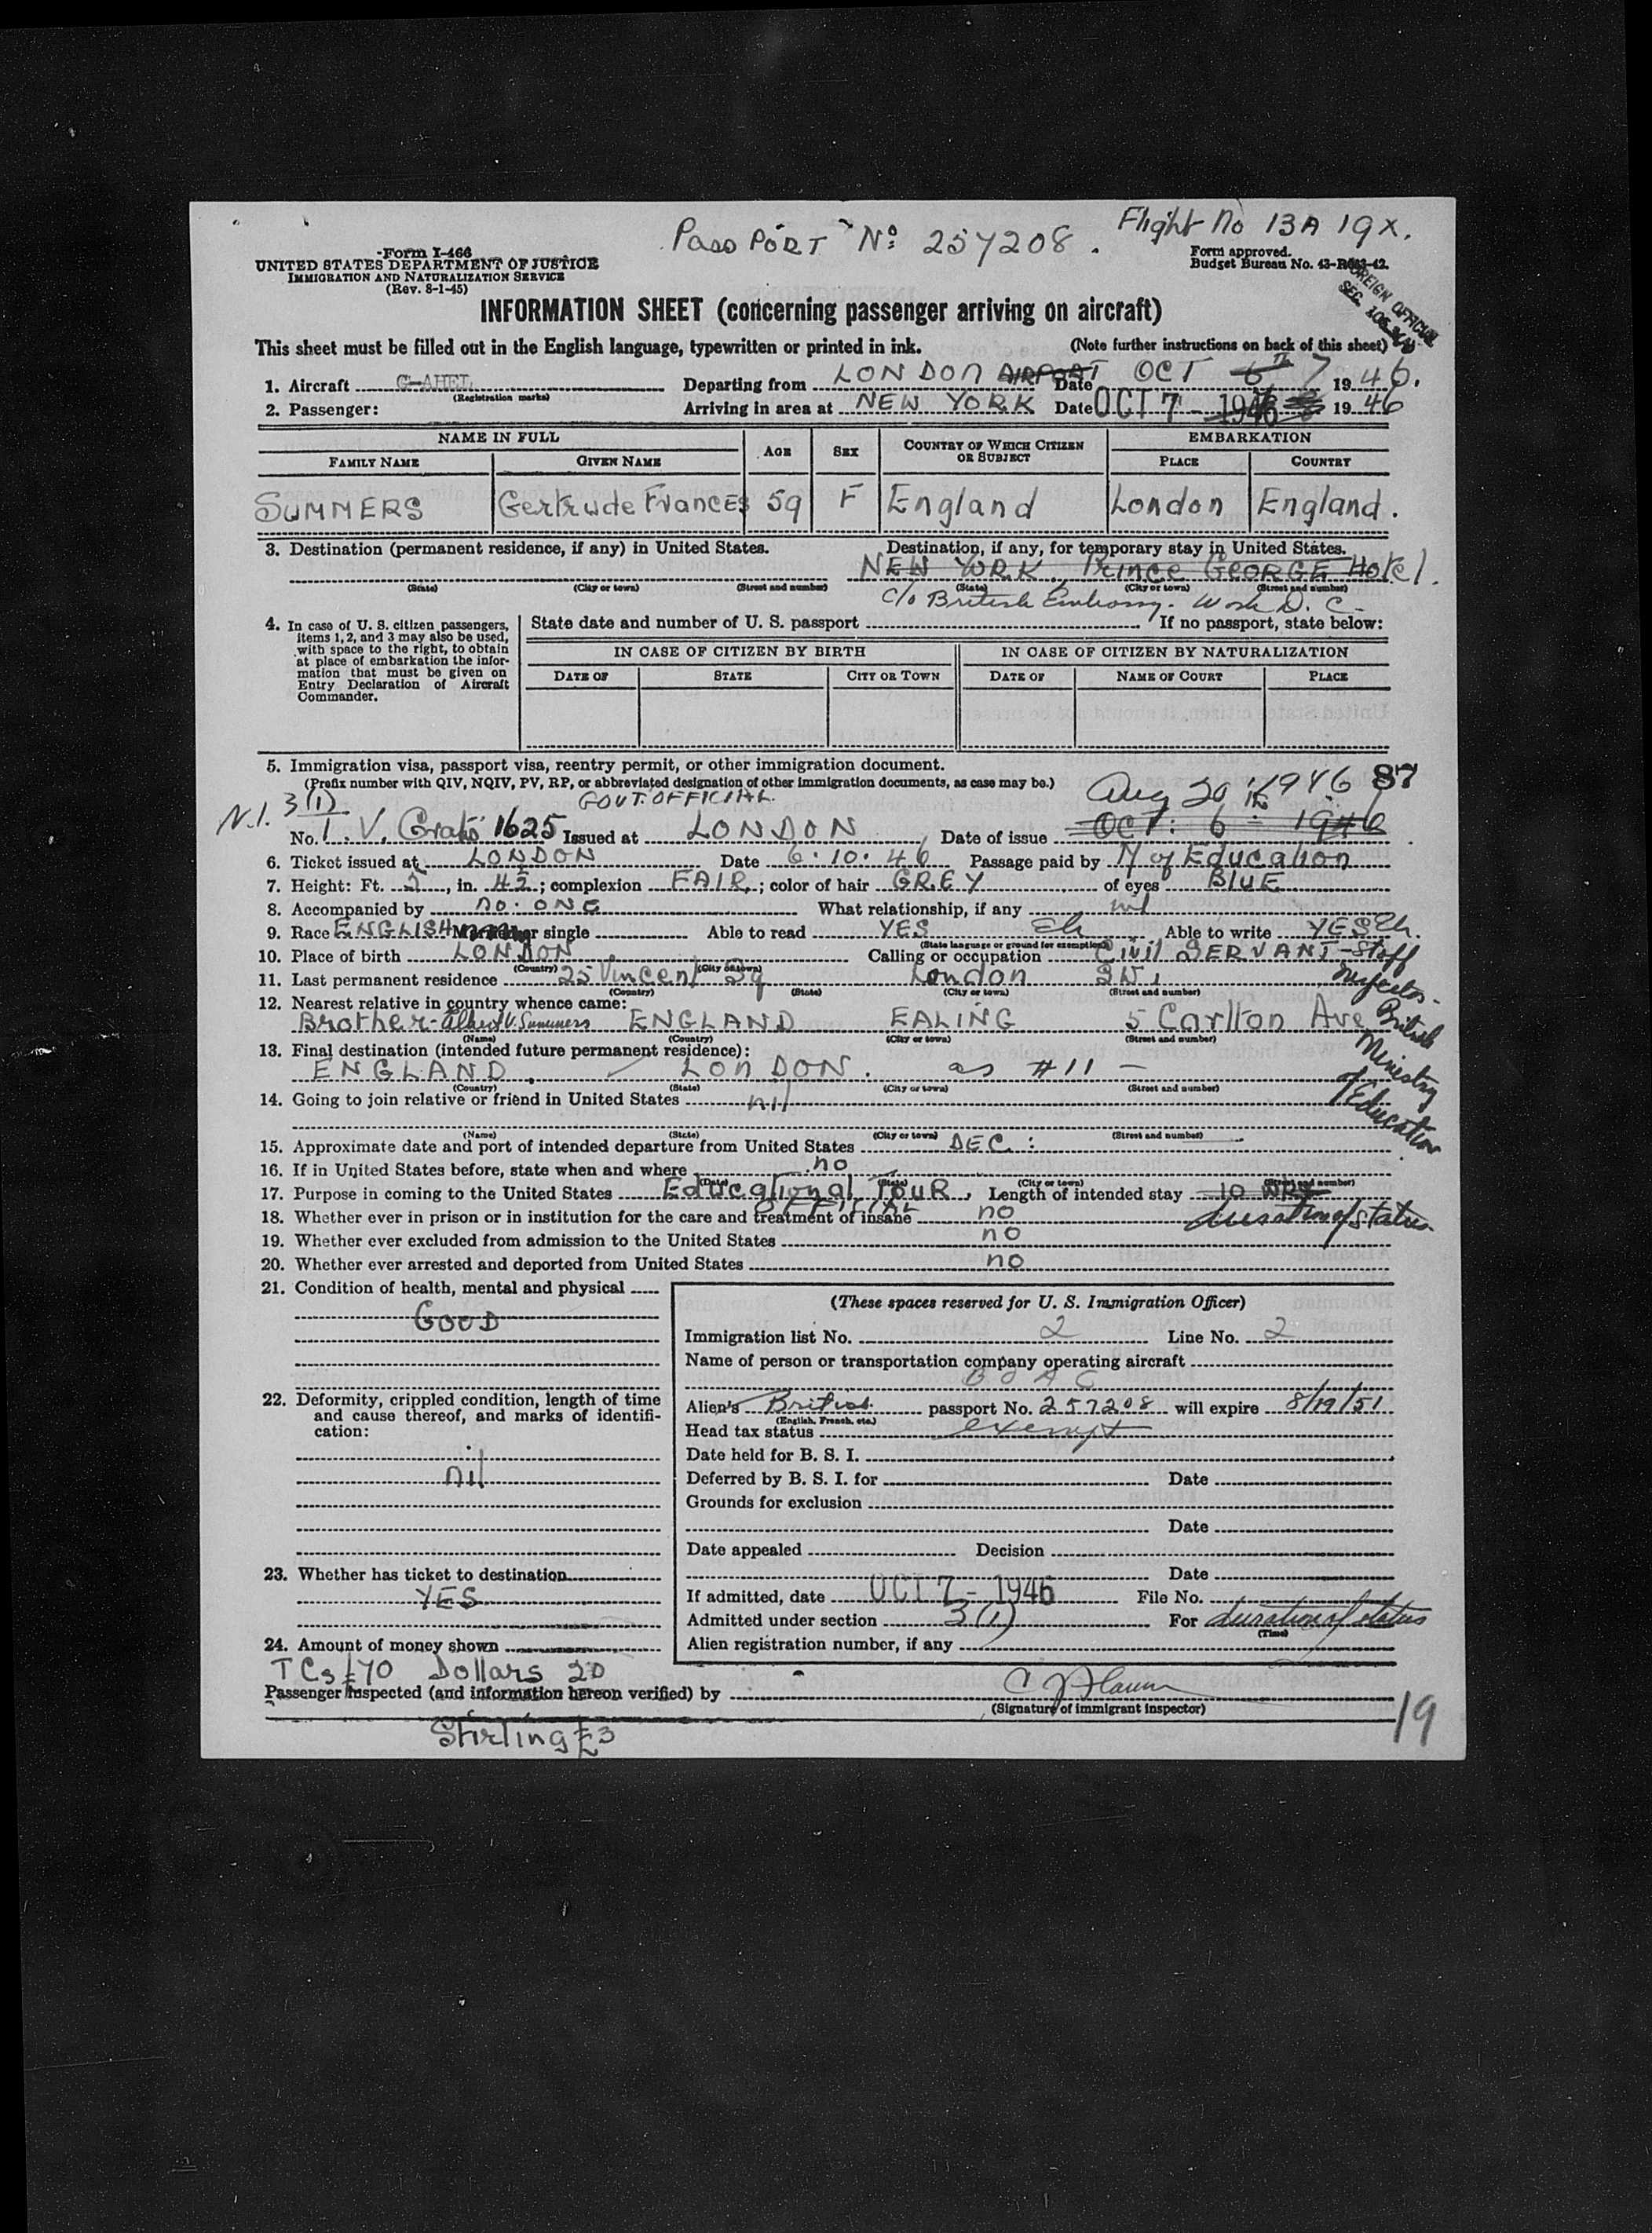 PassPORT Nº 257208. Flight No 13A 19X.
Form I-466
UNITED STATES DEPARTMENT OF JUSTICE
IMMIGRATION AND NATURALIZATION SERVICE
(Rev. 8-1-45)
Form approved.
Budget Bureau No. 43-R043-42.
FOREIGN OFFICIAL
SEC.
INFORMATION SHEET (concerning passenger arriving on aircraft)
This sheet must be filled out in the English language, typewritten or printed in ink. (Note further instructions on back of this sheet)
1. Aircraft G-AHEL Departing from LONDON AIRPORT Date OCT 6TH 7 1946.
(Registration marks)
2. Passenger: Arriving in area at NEW YORK Date OCT 7 - 1946 1946
NAME IN FULL AGE SEX COUNTRY OF WHICH CITIZEN OR SUBJECT EMBARKATION
FAMILY NAME GIVEN NAME PLACE COUNTRY
SUMMERS Gertrude FrancEs 59 F England London England.
3. Destination (permanent residence, if any) in United States. Destination, if any, for temporary stay in United States.
NEW YORK. Prince GEORGE HOtel.
(State) (City or town) (Street and number) (State) (City or town) (Street and number)
c/o British Embassy. Wash D. C.
4. In case of U. S. citizen passengers, items 1, 2, and 3 may also be used, with space to the right, to obtain at place of embarkation the information that must be given on Entry Declaration of Aircraft Commander.
State date and number of U. S. passport If no passport, state below:
IN CASE OF CITIZEN BY BIRTH IN CASE OF CITIZEN BY NATURALIZATION
DATE OF STATE CITY OR TOWN DATE OF NAME OF COURT PLACE
5. Immigration visa, passport visa, reentry permit, or other immigration document.
(Prefix number with QIV, NQIV, PV, RP, or abbreviated designation of other immigration documents, as case may be.)
N.I. 3(1) GOVT. OFFICIAL Aug 20th 1946 87
No. 1. V. Gratis 1625 Issued at LONDON Date of issue OCT: 6 1946
6. Ticket issued at LONDON Date 6.10.46 Passage paid by M of Education
7. Height: Ft. 5, in. 4½; complexion FAIR; color of hair GREY of eyes BLUE
8. Accompanied by NO. ONE What relationship, if any nil
9. Race ENGLISH Married or single Able to read YES Able to write YES
(State language or ground for exemption)
10. Place of birth LONDON Calling or occupation Civil SERVANT - Staff Inspector - British Ministry of Education
(Country) (City or town)
11. Last permanent residence 25 Vincent Sq London SW1
(Country) (State) (City or town) (Street and number)
12. Nearest relative in country whence came:
Brother - Albert V. Summers ENGLAND EALING 5 Carlton Ave
(Name) (Country) (City or town) (Street and number)
13. Final destination (intended future permanent residence):
ENGLAND LONDON. as #11 -
(Country) (State) (City or town) (Street and number)
14. Going to join relative or friend in United States nil
(Name) (State) (City or town) (Street and number)
15. Approximate date and port of intended departure from United States DEC:
16. If in United States before, state when and where no
(Date) (State) (City or town) (Street and number)
17. Purpose in coming to the United States Educational TOUR, Length of intended stay 10 WKS
OFFICIAL duration of status
18. Whether ever in prison or in institution for the care and treatment of insane no
19. Whether ever excluded from admission to the United States no
20. Whether ever arrested and deported from United States no
21. Condition of health, mental and physical
GOOD
22. Deformity, crippled condition, length of time and cause thereof, and marks of identification:
nil
23. Whether has ticket to destination
YES
24. Amount of money shown
TCs £70 Dollars 20
(These spaces reserved for U. S. Immigration Officer)
Immigration list No. 2 Line No. 2
Name of person or transportation company operating aircraft
BOAC
Alien's British passport No. 257208 will expire 8/19/51
(English, French, etc.)
Head tax status exempt
Date held for B. S. I.
Deferred by B. S. I. for Date
Grounds for exclusion
Date
Date appealed Decision
Date
If admitted, date OCT 7 - 1946 File No.
Admitted under section 3(1) For duration of status
(Time)
Alien registration number, if any
Passenger inspected (and information hereon verified) by
(Signature of immigrant inspector)
Stirling £3
19